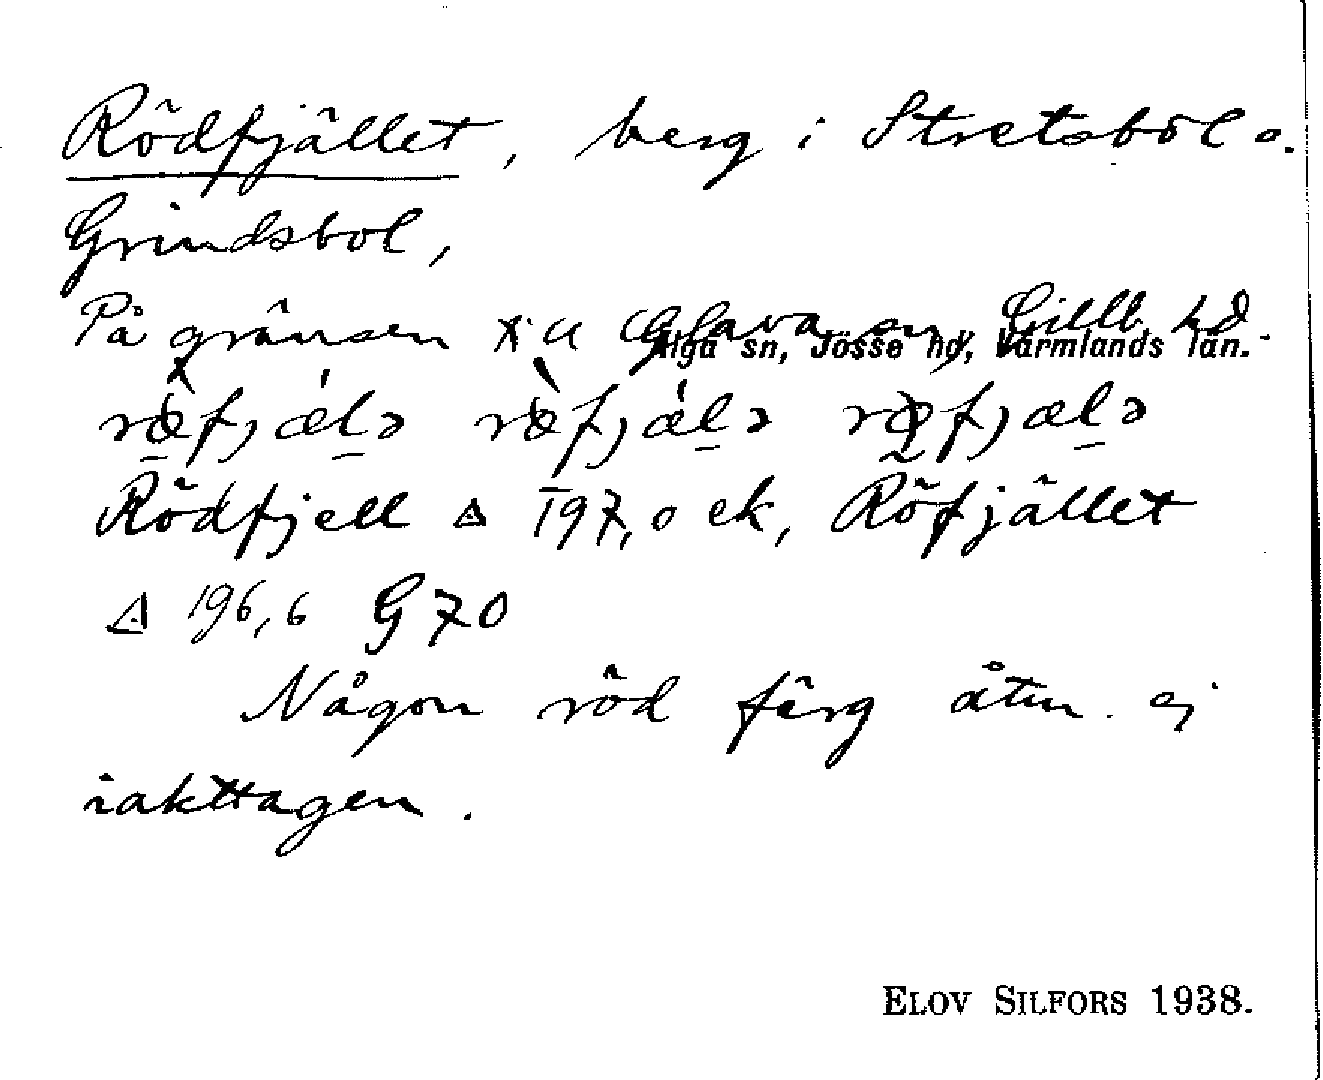 Rödfjället, berg i Stretsbol o.
Grindsbol,
På gränsen till Glava sn, Gillb. hd.
Älgå sn, Jösse hd, Värmlands län.
Rödfjell △ 197,0 ek, Röfjället
△ 196,6 G 70
Någon röd färg åtm. ej
iakttagen.
ELOV SILFORS 1938.